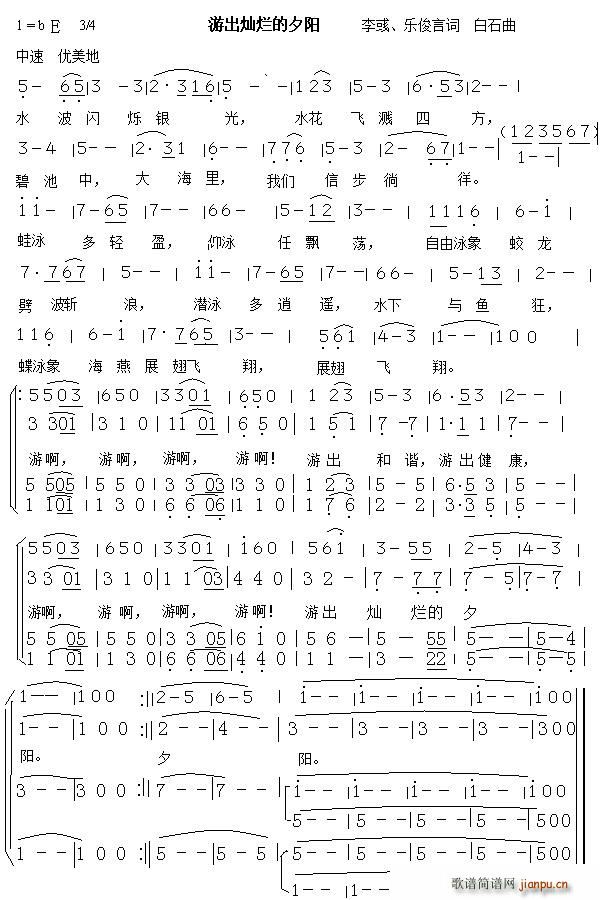 1=bE 3/4 游出灿烂的夕阳 李彧、乐俊言词 白石曲
中速 优美地
5- 65|3 -3|2·316|5 - -|- 123|5-3|6·53|2--|
水 波 闪 烁 银 光， 水花 飞 溅 四 方，
3-4|5--|2·31|6--|776|5-3|2- 67|1--|(123567)
1--|
碧 池 中， 大 海 里， 我们 信 步 徜 徉。
11-|7-65|7--|66-|5-12|3--|1116|6-1|
蛙泳 多 轻 盈， 仰泳 任 飘 荡， 自由泳象 蛟 龙
7·767|5--|11-|7-65|7--|66-|5-13|2--|
劈 波斩 浪， 潜泳 多 逍 遥， 水下 与 鱼 狂，
116|6-1|7·765|3--|561|4-3|1--|100|
蝶泳象 海 燕 展 翅飞 翔， 展翅 飞 翔。
:5503|650|3301|650|1 23|5-3|6·53|2--|
3 301|3 1 0|11 01|6 5 0|1 5 1|7 -7|1·1 1|7--|
游啊， 游啊， 游啊， 游啊！ 游 出 和 谐， 游 出 健 康，
5 505|5 5 0|3 3 03|3 3 0|1 2 3|5 - 5|6·5 3|5 - -|
1 101|1 3 0|6 6 06|1 3 0|1 7 6|2 - 2|3·3 5|5 - -|
5503|650|3301|160|561|3-55|2-5|4-3|
33 01|3 1 0|1 1 03|4 4 0|3 2 -|7 -7 7|7 - 5|7-7|
游啊， 游 啊， 游啊， 游 啊！ 游 出 灿 烂 的 夕
5 5 05|5 5 0|3 3 05|6 1 0|5 5 -|5 - 55|5 - 5|5-4|
1 1 01|1 3 0|6 6 06|4 4 0|1 1 -|3 - 22|5 - 5|5-5|
1--|100:||2-5|6-5|1--|1--|1--|1--|100||
1--|100:||2--|4--|3--|3--|3--|3--|300||
阳。 夕 阳。
3 --|3 0 0:||7 --|7 --|1--|1--|1--|1--|100||
5--|5--|5--|5--|500||
1 --|1 0 0:||5 --|5 --|5--|5--|5--|5--|500||
1--|1--|
歌谱简谱网
jianpu.cn